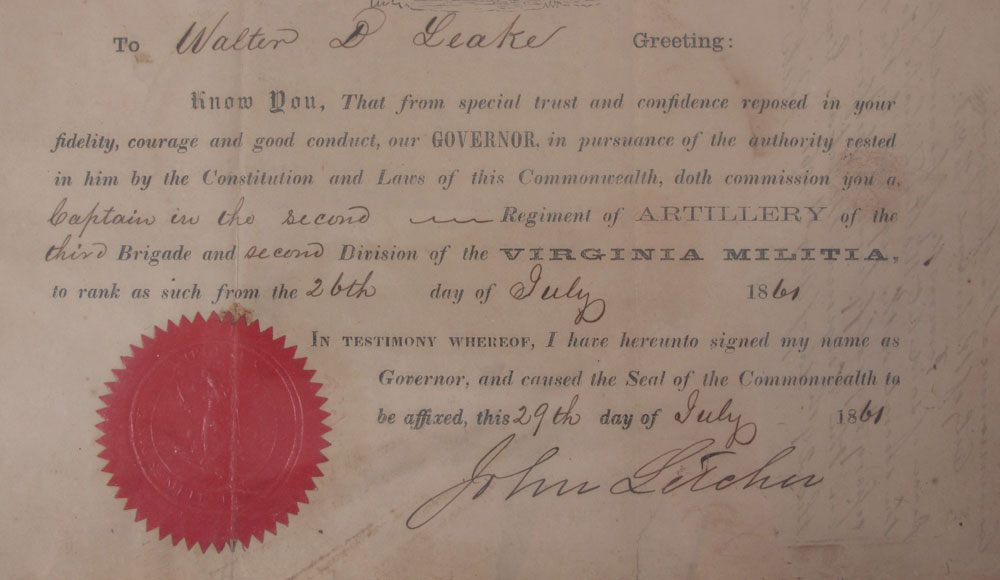 To Walter D Leake Greeting:
Know You, That from special trust and confidence reposed in your
fidelity, courage and good conduct, our GOVERNOR, in pursuance of the authority vested
in him by the Constitution and Laws of this Commonwealth, doth commission you a
Captain in the second Regiment of ARTILLERY of the
third Brigade and second Division of the VIRGINIA MILITIA,
to rank as such from the 26th day of July 1861
IN TESTIMONY WHEREOF, I have hereunto signed my name as
Governor, and caused the Seal of the Commonwealth to
be affixed, this 29th day of July 1861
John Letcher